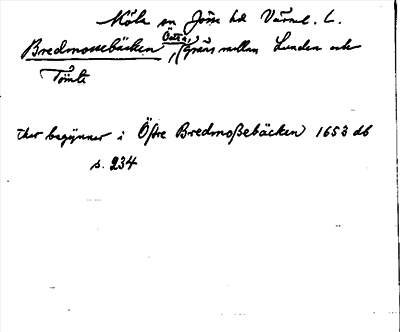 Köla sn Jösse hd Värml. L.
Bredmossebäcken, Östra, (gräns mellan Lunden och
Tömte
Ther begÿnner i Öftre Bredmoßebäcken 1653 db
s. 234